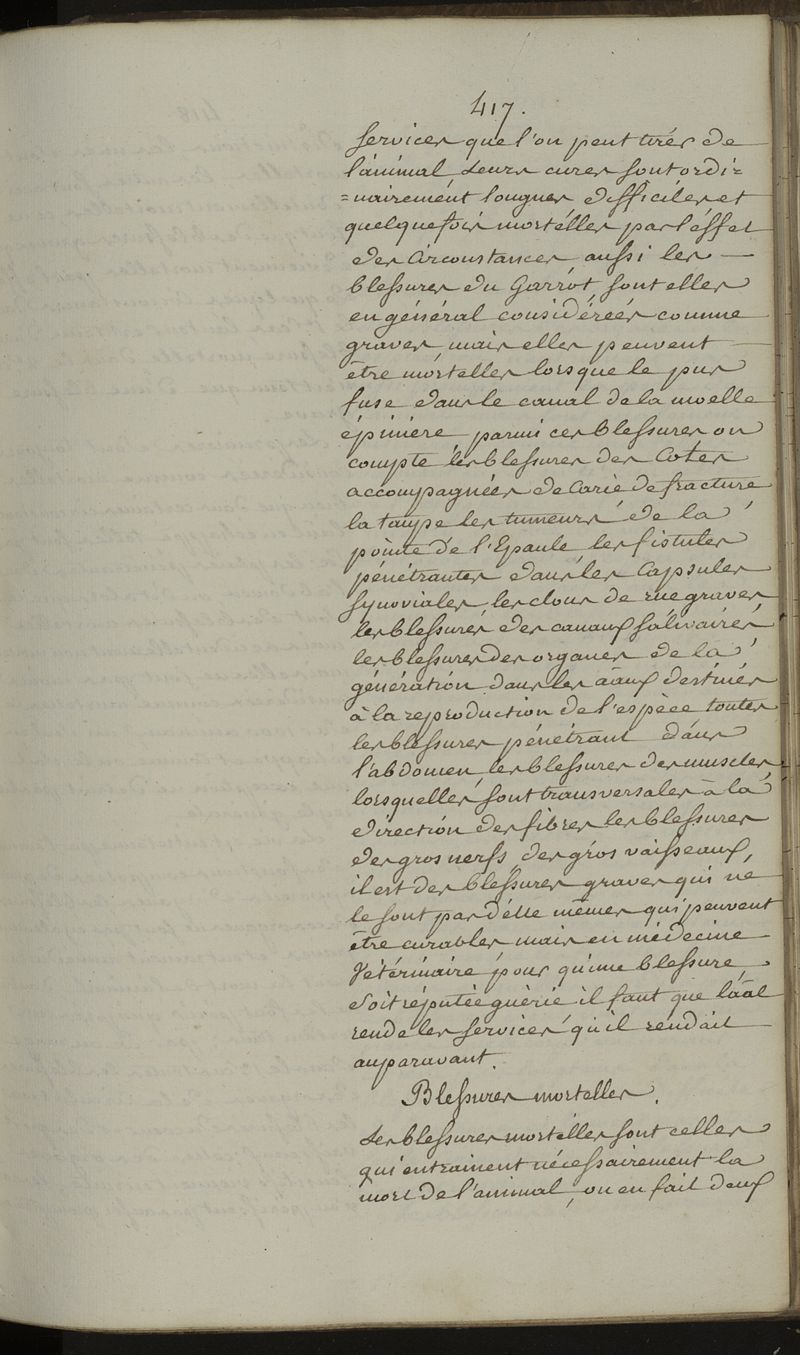 417.
services que l'on peut tirér de
l'animal Leurs cures sont ordi=
=nairemént longues difficiles et
quelquefois mortélles par l'éffet
des Circonstances aussi les
blessures du Garrot sont elles
en général considéréés comme
graves mais elles peuvent
être mórtelles lorsque le pus
fuse dans le canal de la moelle
épiniere parmi ces blessures on
compte les blessures des Cotes
accompagnées de Carie de fracture
la taupe les tumeurs de la
pointe de l'Epaule les fistules
pénétrantes dans les Capsules
synoviales, les clous de rue graves
les blessurés des canaux sálivairés
les blessures des organes de la
génération dans les aaux destinés
à la reproduction de l'espèce toutes
les blessures pénétrant dans
l'abdomen, les blessures des muscles,
lorsquelles sont transversales à la
dirèction des fibres les blessures
des gros nerfs, des gros vaisseaux,
il est des blessures graves qui né
le sont par d'élle mêmes qui peuvent
être curables mais en médecine
Vétérinaire pour qu'une blessure,
soit réputée guèrie il faut que láál
rende les services qu'il rendait
auparavant.
Blessures mortelles.
Les blessures mortélles sont celles
qui entrainent nécessairement la
mort de l'animal, on en fait deux